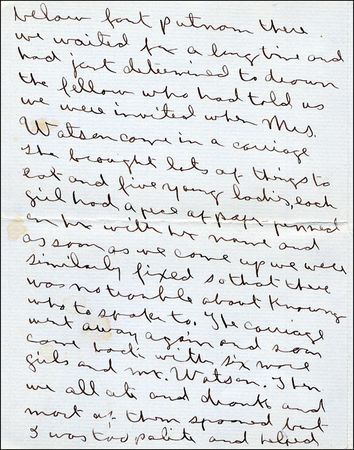 below fort Putnam there.
we waited for a long time and
had just determined to drown
the fellow who had told us
we were invited when Mrs.
Watson came in a carriage
she brought lots of things to
eat and five young ladies, each
girl had a piece of paper pinned
on her with her name and
as soon as we came up we were
similarly fixed so that there
was no trouble about knowing
who to speak to. The carriage
went away again and soon
came back with six more
girls and Mr. Watson. Then
we all ate and drank and
most of them spooned but
I was too polite and helped